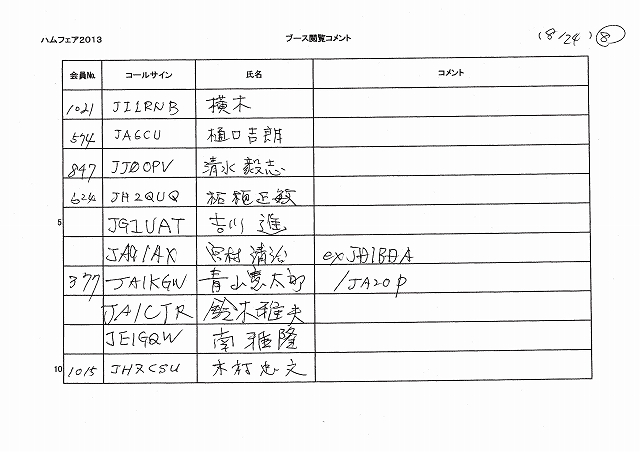 ハムフェア2013 ブース閲覧コメント (8/24) ⑧
会員No. コールサイン 氏名 コメント
1021 JI1RNB 横木
574 JA6CU 樋口吉朗
847 JJ0OPV 清水毅志
624 JH2QUQ 稲垣正敏
5 JG1UAT 吉川 進
村 清治 exJH1BBA
377 JA1KGW 青山憲太郎 /JA2OP
JA1CTR 鈴木雅夫
JE1GQW 南 雅隆
10 1015 JH7CSU 木村忠文